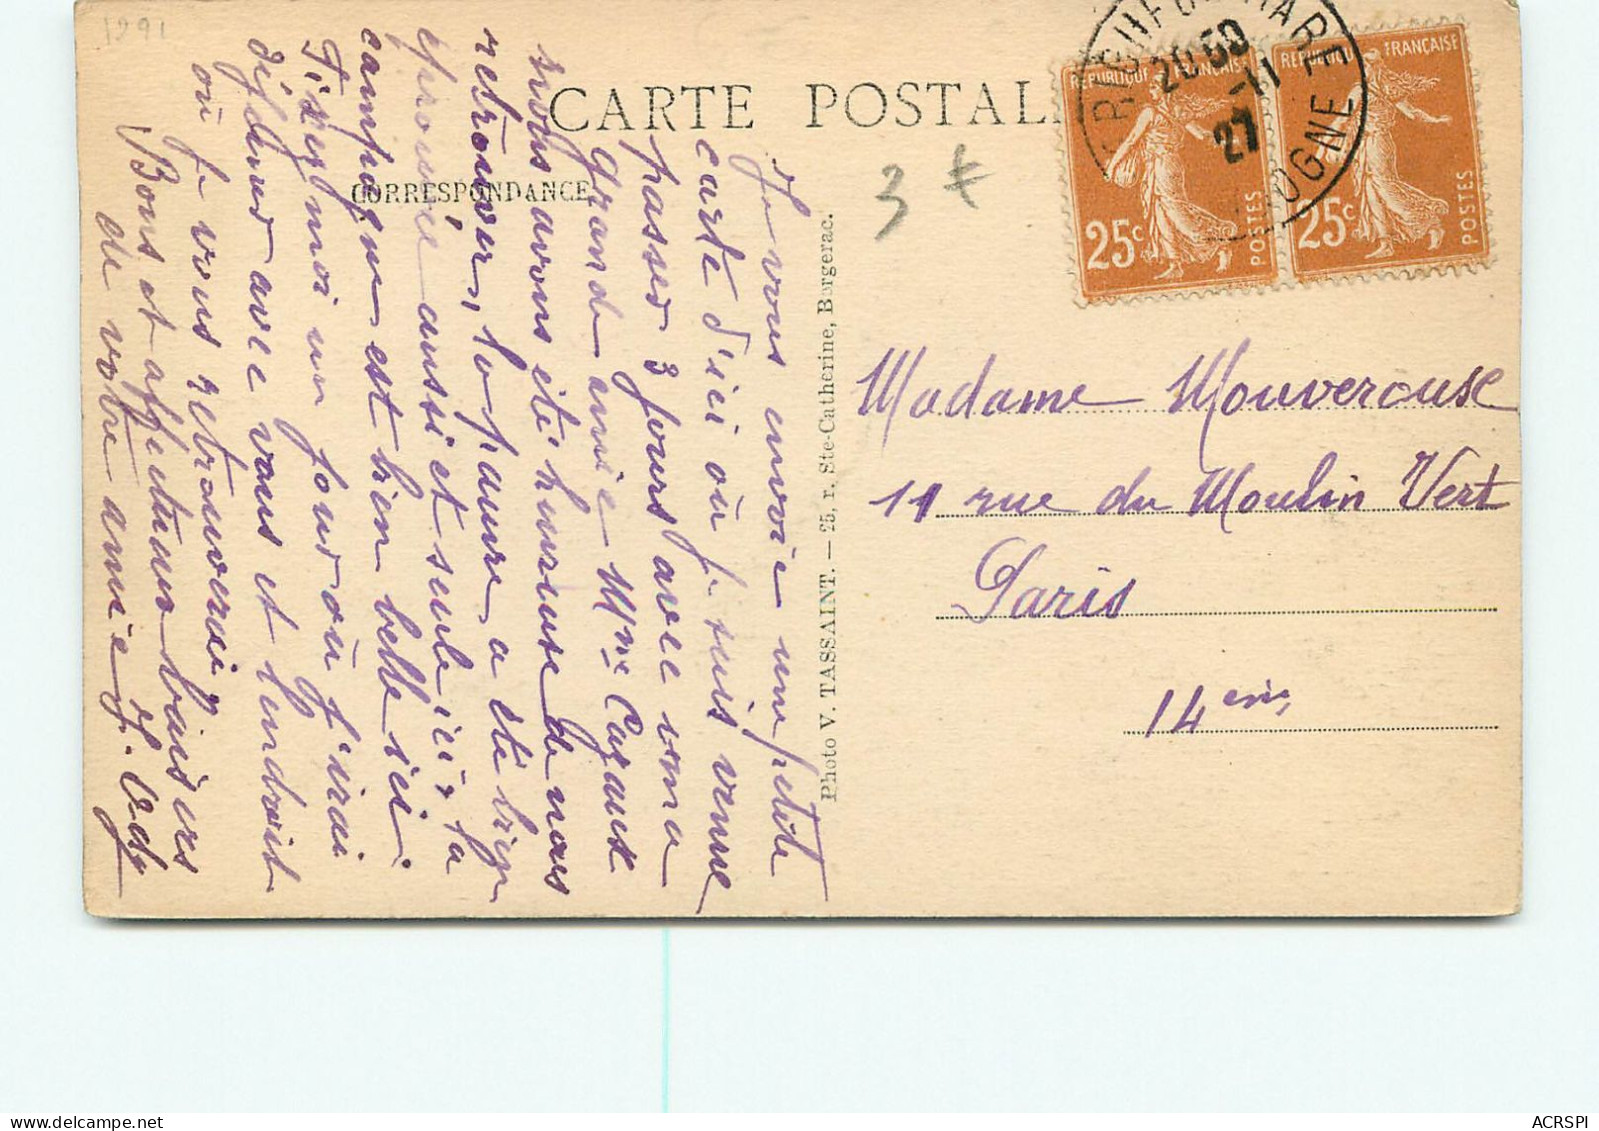 1291
CARTE POSTAL
CORRESPONDANCE
Je vous envoie une petite
carte d'ici où je suis venue
passer 3 jours avec ma
grande amie Mme Cazaux
nous avons été heureuse de nous
retrouver, la pauvre a été bien
éprouvée aussi et seule ici, la
campagne est bien belle ici
Fixez moi un jour où j'irai
déjeuner avec vous et l'endroit
où je vous retrouverai
Bons et affectueux baisers
de votre amie
Photo V. TASSAINT. — 25, r. Ste-Catherine, Bergerac.
3 €
REPUBLIQUE FRANÇAISE
25c
POSTES
REPUBLIQUE FRANÇAISE
25c
POSTES
20 50
-11
27
Madame Mouverouse
11 rue du Moulin Vert
Paris
14ème
ACRSPI